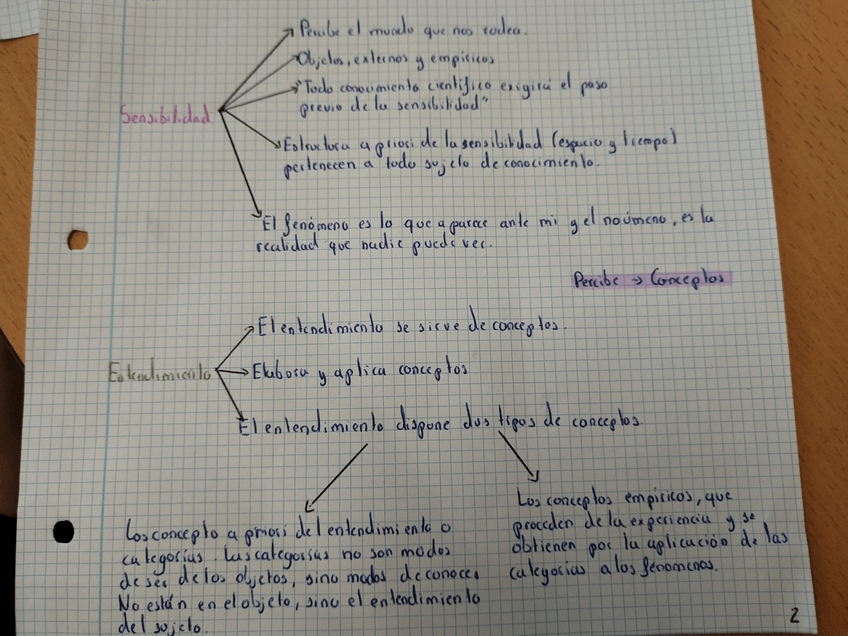 Percibe el mundo que nos rodea.
Objetos, externos y empíricos
"Todo conocimiento científico exigirá el paso
previo de la sensibilidad"
Sensibilidad
Estructura a priori de la sensibilidad (espacio y tiempo)
pertenecen a todo sujeto de conocimiento.
El fenómeno es lo que aparece ante mi y el noúmeno, es la
realidad que nadie puede ver.
Percibe → Conceptos
El entendimiento se sirve de conceptos.
Entendimiento
Elabora y aplica conceptos
El entendimiento dispone dos tipos de conceptos.
Los concepto a priori del entendimiento o
categorías. Las categorías no son modos
de ser de los objetos, sino modos de conocer.
No están en el objeto, sino el entendimiento
del sujeto.
Los conceptos empíricos, que
proceden de la experiencia y se
obtienen por la aplicación de las
categorías a los fenómenos.
2